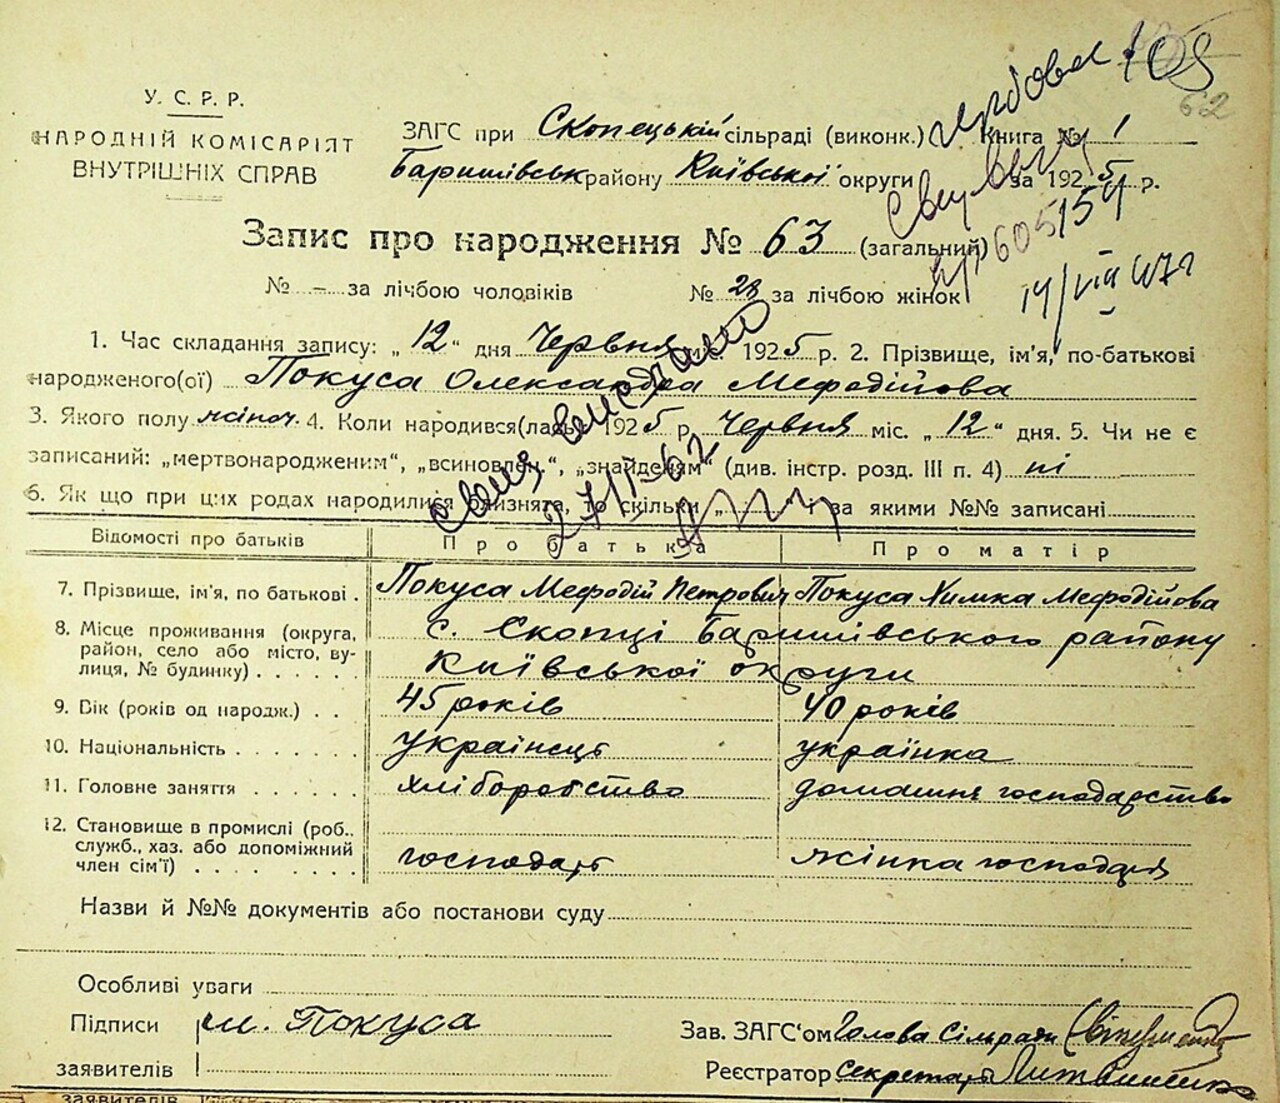 105
62
У. С. Р. Р.
НАРОДНІЙ КОМІСАРІЯТ
ВНУТРІШНІХ СПРАВ
ЗАГС при Скопецькій сільраді (виконк.) Книга № 1
Баришівськ району Київської округи за 1925 р.
Запис про народження № 63 (загальний)
605154
№ – за лічбою чоловіків № 28 за лічбою жінок
14/VIII 47
1. Час складання запису: „12“ дня Червня 1925 р. 2. Прізвище, ім'я, по-батькові
народженого(ої) Покуса Олександра Мефодійова
3. Якого полу жіноч. 4. Коли народився(лась) 1925 р. Червня міс. „12“ дня. 5. Чи не є
записаний: „мертвонародженим“, „всиновлен.“, „знайденям“ (див. інстр. розд. III п. 4) ні
6. Як що при цих родах народилися близнята, то скільки „ “ і за якими №№ записані
Відомості про батьків Про батька Про матір
7. Прізвище, ім'я, по батькові . Покуса Мефодій Петрович Покуса Химка Мефодійова
8. Місце проживання (округа, с. Скопці Баришівського району
район, село або місто, ву-
лиця, № будинку) Київської округи
9. Вік (років од народж.) . . 45 років 40 років
10. Національність українець українка
11. Головне заняття хліборобство домашнє господарство
12. Становище в промислі (роб.,
служб., хаз. або допоміжний
член сім'ї) господарь жінка господаря
Назви й №№ документів або постанови суду
Особливі уваги
Підписи м. Покуса Зав. ЗАГС'ом Голова Сільради
заявителів Реєстратор Секретарь Литвиненко